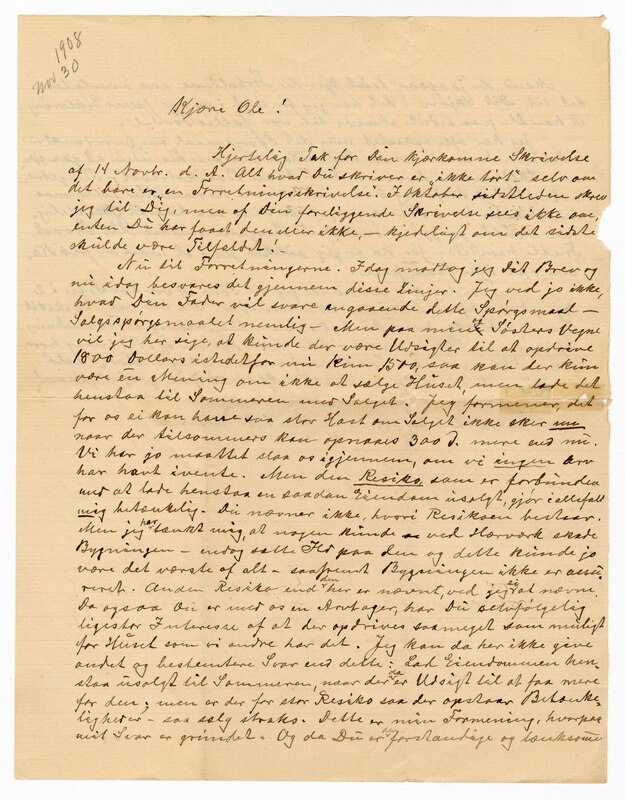 1908
Nov 30
Kjære Ole!
Hjertelig Tak for Din kjærkomne Skrivelse
af 14 Novbr. d. A. Alt hvad Du skriver er "ikke tørt" selv om
det bare er en Forretningsskrivelse. I Oktober sidstleden skrev
jeg til Dig, men af Din foreliggende Skrivelse sees ikke om,
enten Du har faaet den eller ikke, – kjedeligt om det sidste
skulde være Tilfældet!
Nu til Forretningerne. Idag modtog jeg Dit Brev og
nu idag besvares det gjennem disse Linjer. Jeg ved jo ikke,
hvad Din Fader vil svare angaaende dette Spørgsmaal –
Salgsspørgsmaalet nemlig – Men paa min og Søsters Vegne
vil jeg her sige, at kunde der være Udsigter til at opdrive
1800 Dollars istedetfor nu kun 1500, saa kan der kun
være én Mening om ikke at sælge Huset, men lade det
henstaa til Sommeren med Salget. Jeg formener, det
for os ei kan have saa stor Hast om Salget ikke sker nu
naar der tilsommers kan opnaaes 300 d. mere end nu.
Vi har jo maattet slaa os igjennem, om vi ingen Arv
har havt ivente. Men den Resiko, som er forbunden
med at lade henstaa en saadan Eiendom usolgt, gjør iallefall
mig betænkelig. Du nævner ikke, hvori Resikoen bestaar.
Men jeg har tænkt mig, at nogen kunde ved Hærværk skade
Bygningen – endog sætte Ild paa den og dette kunde jo
være det værste af alt – saafremt Bygningen ikke er assu-
reret. Anden Resiko end den her er nævnt, ved jeg ei at nævne.
Da ogsaa Du er med os en Arvtager, har Du selvfølgelig
ligestor Interesse af at der opdrives saameget som muligt
for Huset som vi andre har det. Jeg kan da her ikke give
andet og bestemtere Svar end dette: Lad Eiendommen hen-
staa usolgt til Sommeren, naar der da er Udsigt til at faa mere
for den; men er der for stor Resiko saa der opstaar Betænke-
ligheder – saa sælg straks. Dette er min Formening, hvorpaa
mit Svar er grundet. Og da Du er forstandige og tænksomme